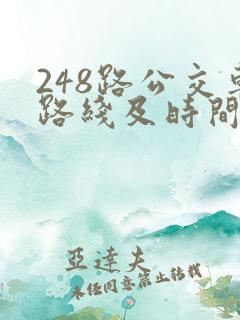 248路公交
路綫及時間
亞達夫
未經同意禁止轉載